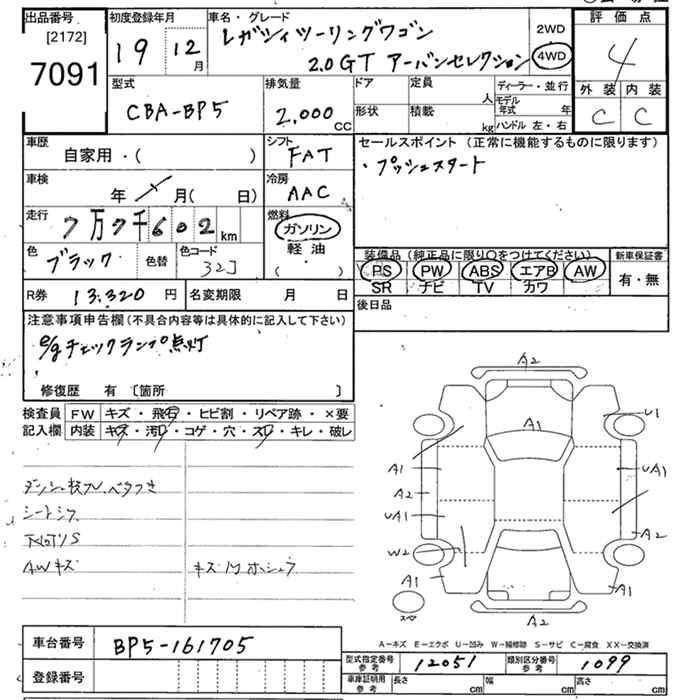 出品番号
[2172]
7091
初度登録年月
19 12月
車名・グレード
レガシィツーリングワゴン
2.0GT アーバンセレクション
2WD
4WD
評価点
4
外装 内装
C C
型式
CBA-BP5
排気量
2,000 cc
ドア
形状
定員 人
積載 kg
ディーラー・並行
モデル年式 年
ハンドル 左・右
車歴
自家用・( )
シフト
FAT
セールスポイント (正常に機能するものに限ります)
・プッシュスタート
車検
年 月( 日)
冷房
AAC
走行
7万7千602km
燃料
ガソリン
軽油
( ・ )
色
ブラック
色替
色コード
32J
装備品(純正品に限り○をつけてください)
PS PW ABS エアB AW
SR ナビ TV カワ
新車保証書
有・無
R券 13,320 円
名変期限 月 日
後日品
注意事項申告欄(不具合内容等は具体的に記入して下さい)
e/gチェックランプ点灯
修復歴 有 [箇所 ]
検査員 FW キズ・飛石・ヒビ割・リペア跡・×要
記入欄 内装 キズ・汚レ・コゲ・穴・スレ・キレ・破レ
AWキズ
A2
A1
U1
A1
A2
UA1
W2
A1
UA1
A2
A1
A2
スペ
A-キズ E-エクボ U-凹み W-補修跡 S-サビ C-腐食 XX-交換済
車台番号 BP5-161705
登録番号
型式指定番号 参考 12051
類別区分番号 参考 1099
車庫証明用 参考 長さ cm 幅 cm 高さ cm